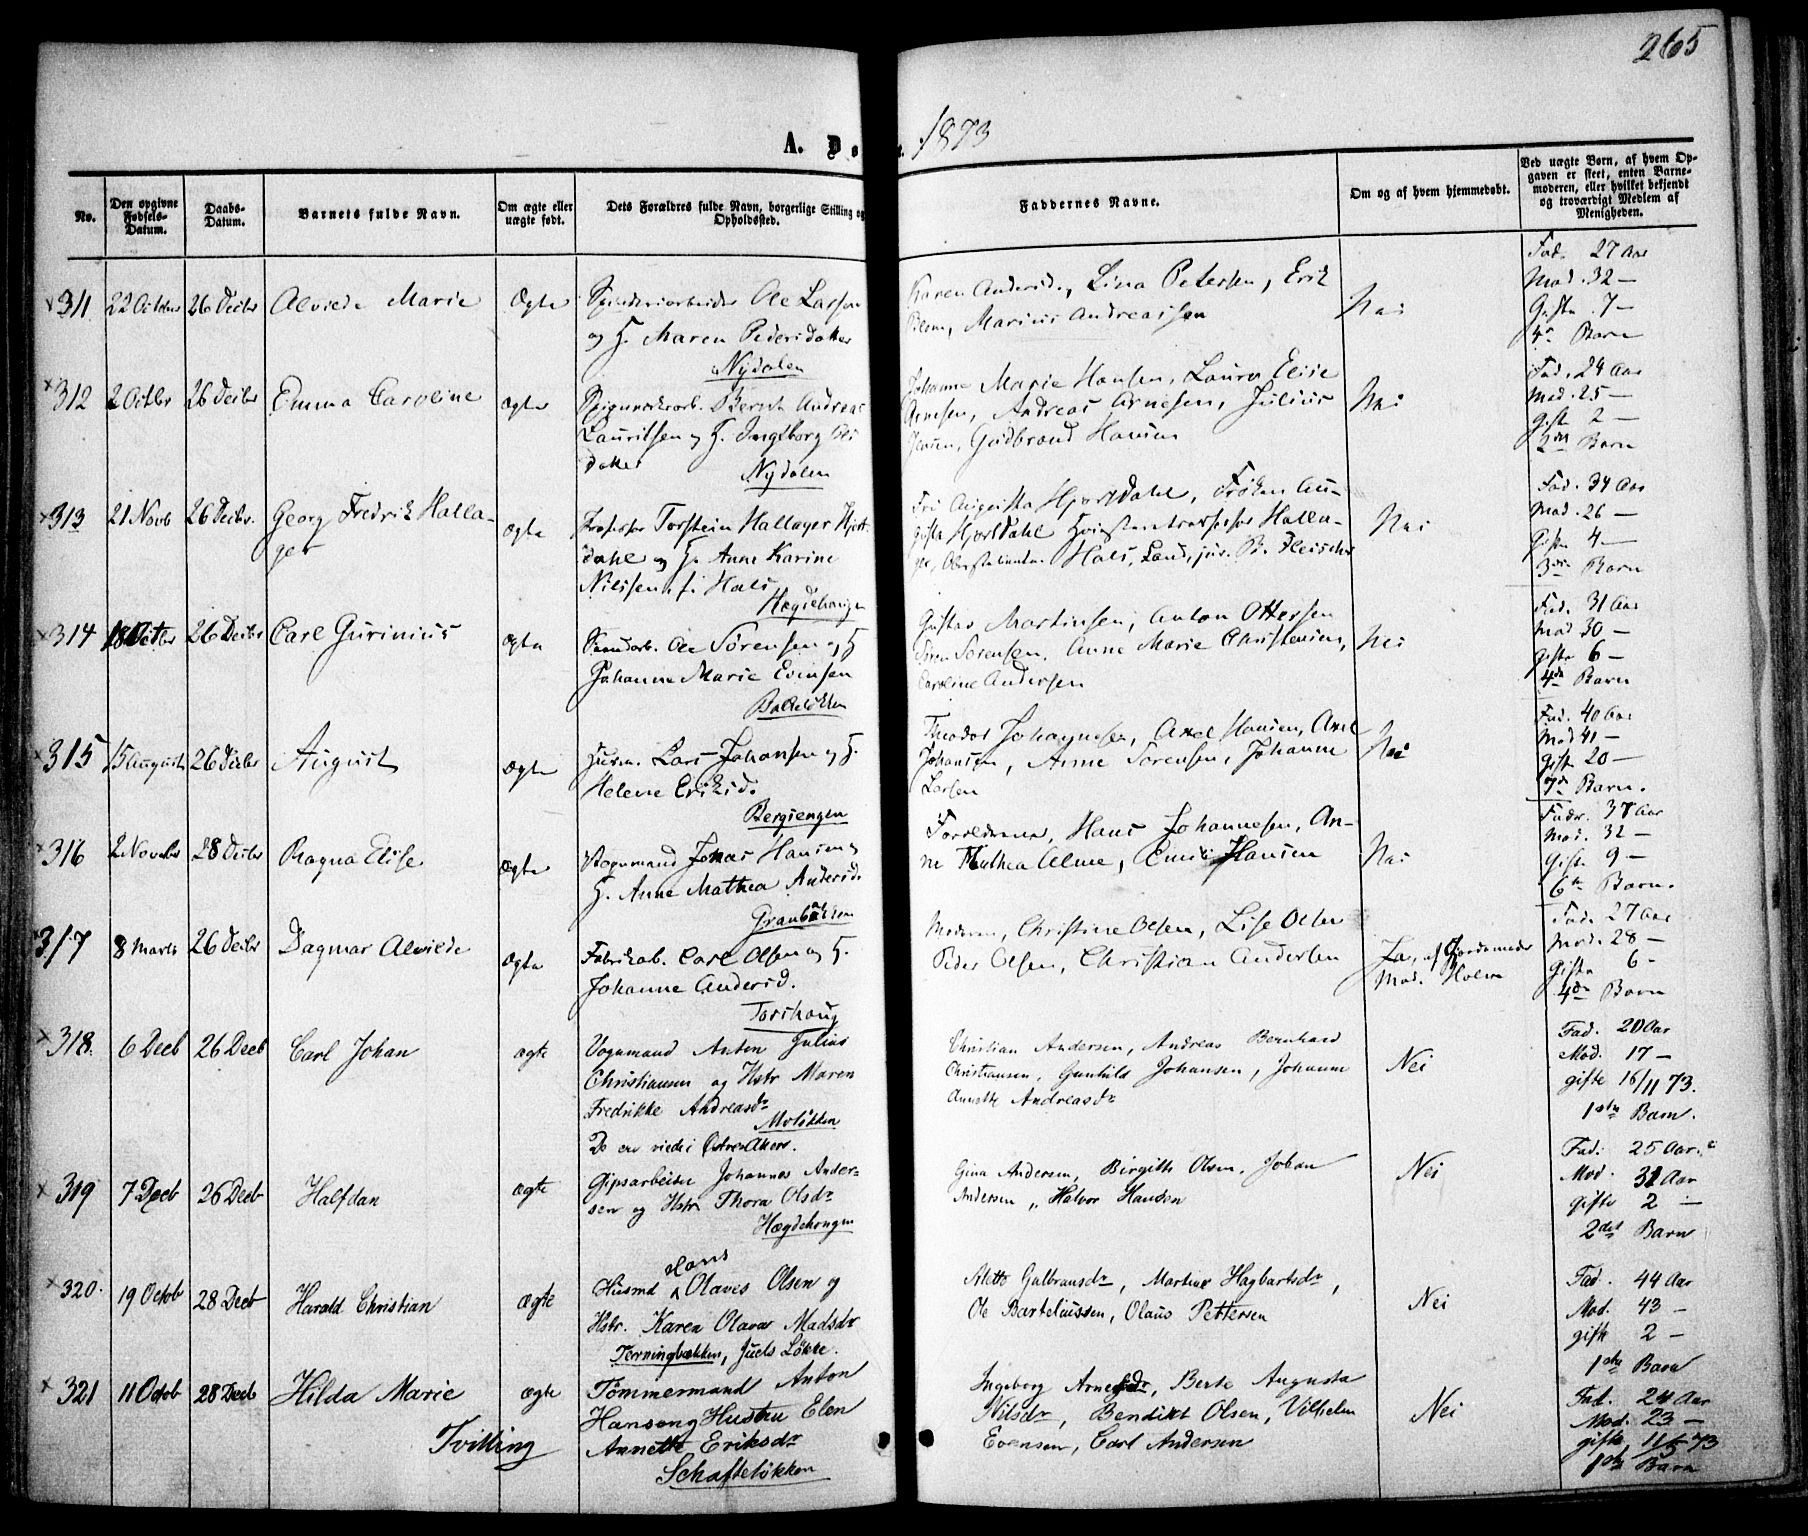 265
A. Dø 1873
No.
Den opgivne Fødsels-Datum.
Daabs-Datum.
Barnets fulde Navn.
Om ægte eller uægte født.
Dets Forældres fulde Navn, borgerlige Stilling og Opholdssted.
Faddernes Navne.
Om og af hvem hjemmedøbt.
Ved uægte Børn, af hvem Opgaven er skeet, enten Barnemoderen, eller hvilket bekjendt og troværdigt Medlem af Menigheden.
311 22 Octobr 26 Decbr Alviede Marie Ægte Spinderiarbeider Ole Larsen
og H. Maren Pedersdatter
Nydalen
Karen Andersd., Lina Petersen, Erik
Blom, Marius Andreassen
Nei
Fad. 27 Aar
Mod. 32 —
Gifte 7 —
4de Barn
312 2 Octbr 26 Decbr Emma Caroline ægte Bernt Andreas
Lauritsen og H. Ingeborg
datter Nydalen
Johanne Marie Hansen, Laura Elise
Arnesen, Andreas Arnesen, Julius
Jensen, Gudbrand Hansen
Nei
Fad. 24 Aar
Mod. 25 —
gift 2 —
2det Barn
313 21 Novb 26 Decbr. Georg Fredrik Halla-
ger
ægte Professor Torstein Hallager Hjort-
dahl og H. Anne Karine
Nilssen f. Hals
Hægdehaugen
Fru Augusta Hjortdahl, Frøken Au-
gusta Hjortdahl Hallager,
Hals, Cand. jur. B. Fleischer
Nei
Fad. 34 Aar
Mod. 26 —
Gifte 4 —
3die Barn
314 18 Octbr 26 Decbr Carl Gurinius ægte Ole Sørensen og H
Johanne Marie Evensen
Balkeløkken
Gustav Martinsen, Anton Ottersen
Søren Sørensen, Anne Marie Christensen,
Caroline Andersen
Nei
Fad. 31 Aar
Mod 30 —
gifte 6 —
4de Barn
315 15 August 26 Decbr August ægte Lars Johansen og H.
Helene Eriksd.
Bergsengen
Theodor Johannesen, Axel Hansen, Axel
Johansen, Anne Sørensen, Johanne
Larsen
Nei
Fad. 40 Aar
Mod 41 —
gift 20 —
Barn.
316 2 Novbr 28 Decbr Ragna Elise Ægte Vognmand Jonas Hansen og
H. Anne Mathea Andersd.
Granbakken
Forældrene, Hans Johannesen, An-
ne Mathea Alme, Emil Hansen
Nei
Fader. 37 Aar
Mod. 32 —
Gifte 9 —
6te Barn.
317 8 Marts 26 Decbr Dagmar Alviede Ægte Fabrikab. Carl Olsen og H.
Johanne Andersd.
Torshaug
Moderen, Christine Olsen, Lise Olsen
Peder Olsen, Christian Andersen
Ja, af Gjordemoder
Mad. Holm
Fad. 27 Aar
Mod. 28 —
Gifte 6 —
4de Barn
318. 6 Decb 26 Decb Carl Johan ægte Vognmand Anton Julius
Christiansen og Hstr Maren
Fredrikke Andreasdr
Moløkken
De ere viede i Østre Akers.
Christian Andersen, Andreas Bernhard
Christiansen, Gunhild Johansen, Johanne
Annette Andreasdr
Nei
Fad. 20 Aar
Mod. 17 —
gifte 16/11 73.
1ste Barn.
319 7 Decb 26 Decb Halfdan ægte Gipsarbeider Johannes Ander-
sen og Hstr Thora Olsdr
Hægdehaugen
Gina Andersen, Birgitte Olsen, Johan
Andersen, Halvor Hansen
Nei
Fad. 25 Aar.
Mod. 31 Aar
gifte 2 —
2det Barn
320. 19 Octob 28 Decb Harald Christian ægte Husmd Hans Olaves Olsen og
Hstr. Karen Olava Madsdr
Terningbækken, Juels Løkke.
Alette Gulbransdr, Martine Hagbartsdr,
Ole Barteliussen, Olaus Pettersen
Nei
Fad. 44 Aar
Mod. 43 —
gift 2 —
1ste Barn
321 11 Octob 28 Decb Hilda Marie
Tvilling
ægte Tømmermand Anton
Hansen og Hustru Elen
Annette Eriksdr
Schafteløkken
Ingeborg Arnesdr, Berte Augusta
Nilsdr, Bendikt Olsen, Vilhelm
Evensen, Carl Andersen
Nei
Fad. 24 Aar
Mod. 23 —
gifte 11/5 73
1ste Barn